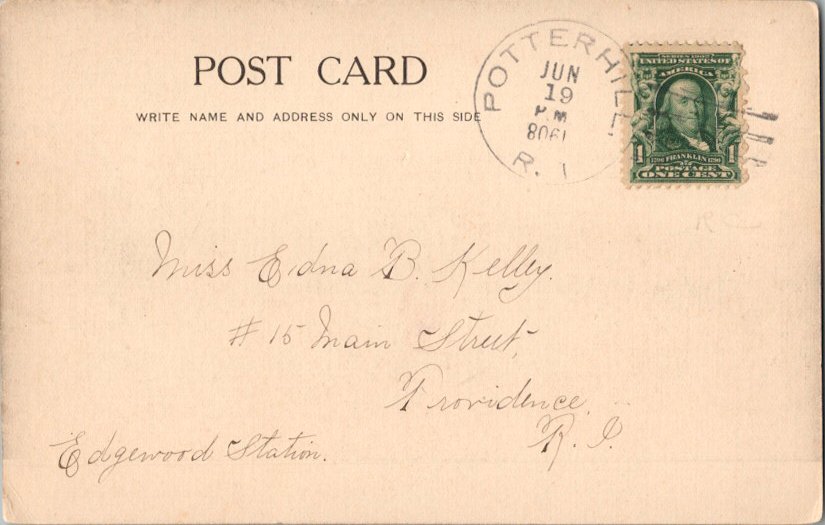 POST CARD
WRITE NAME AND ADDRESS ONLY ON THIS SIDE
POTTERHILL
JUN
19
P.M.
1908
R. I.
SERIES 1902
UNITED STATES OF
AMERICA
1 1706 FRANKLIN 1790 1
POSTAGE
ONE CENT
Miss Edna B. Kelley.
# 15 Main Street,
Providence,
R. I.
Edgewood Station.